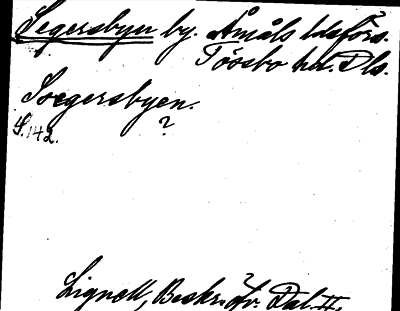 Segersbyn by. Åmåls ldsförs.
Tössbo hd. Dls.
Soegersbyen.
S. 142. ?
Lignell, Beskr. öfv. Dal. II.